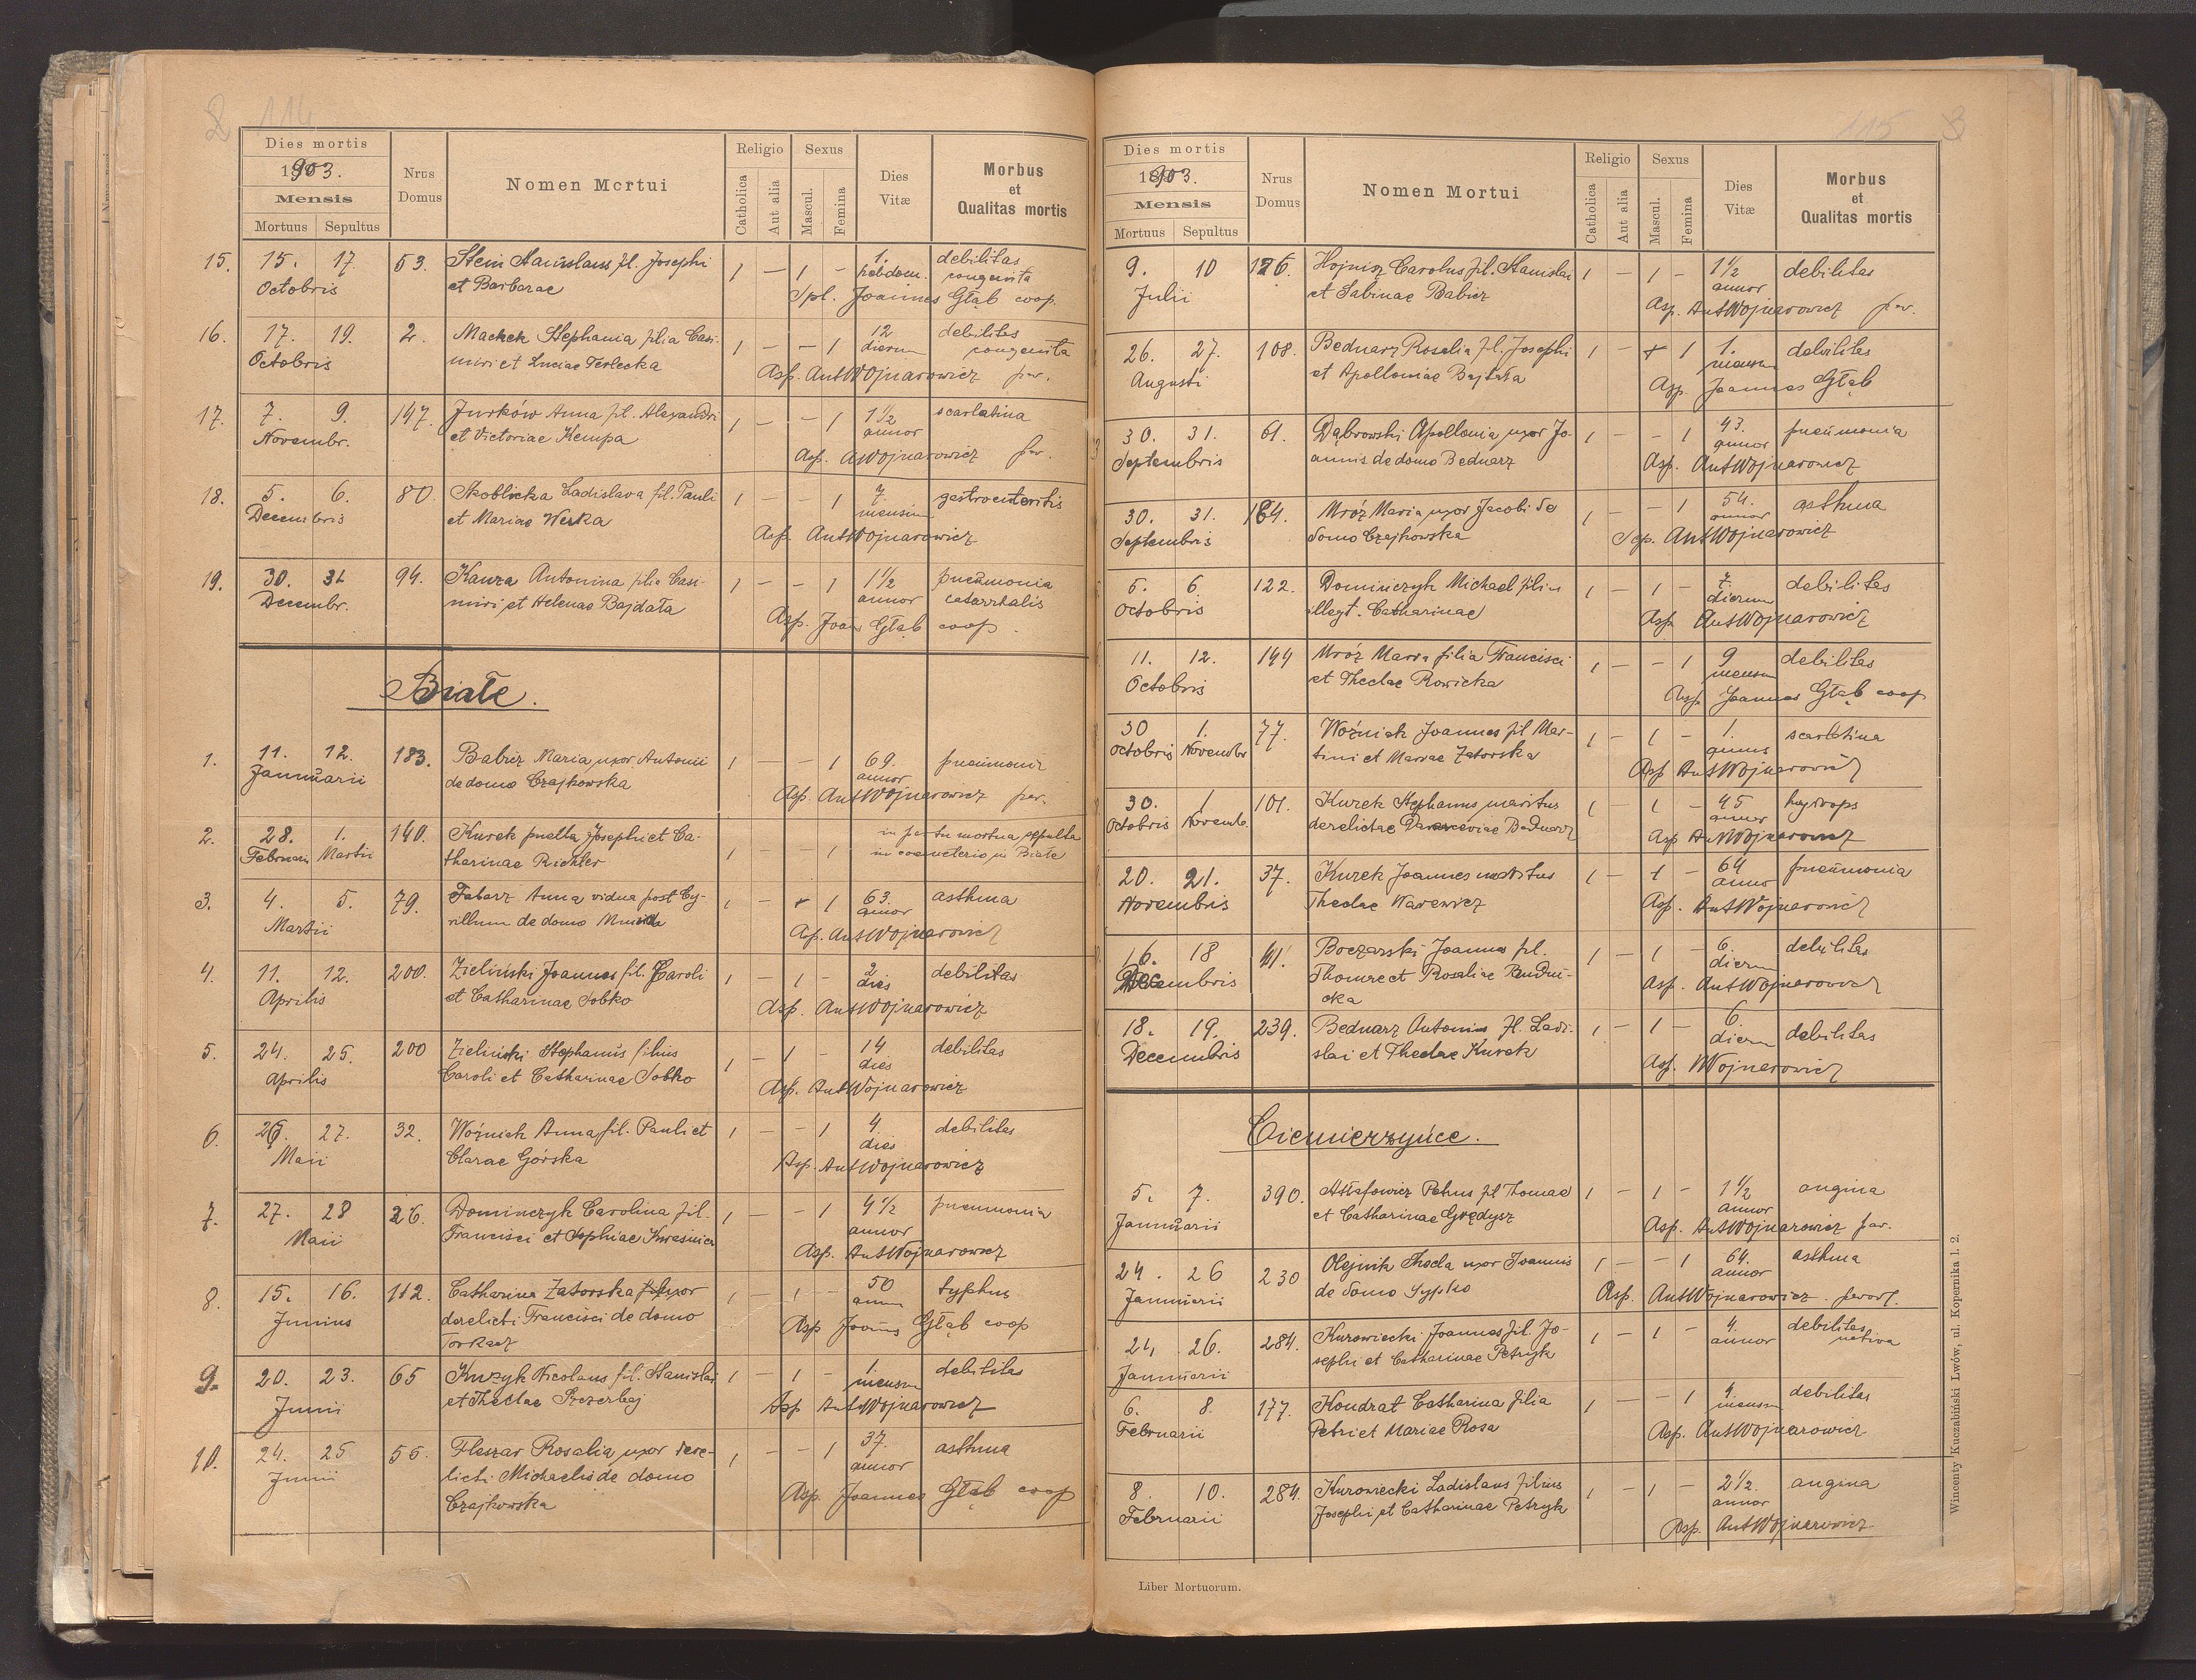 2 114
Dies mortis
1903.
Mensis
Mortuus Sepultus
Nrus Domus
Nomen Mortui
Religio
Catholica
Aut alia
Sexus
Mascul.
Femina
Dies Vitæ
Morbus et Qualitas mortis
15. 15. 17 53. Stein Stanislaus fil. Josephi 1 — 1 – 1. debilitas
Octobris et Barbarae hebdom. congenita
Spl. Joannes Głąb coop.
16. 17. 19. 2. Machek Stephania filia Casi- 1 – – 1 12 debilitas
Octobris miri et Luciae Terlecka dierum congenita
Asp. AntWojnarowicz par.
17. 7. 9. 147. Jurków Anna fil. Alexandri 1 – – 1 1½ scarlatina
Novembr. et Victoriae Kempa annor
Asp. AWojnarowicz par.
18. 5. 6. 80. Skoblicka Ladislava fil. Pauli 1 – – 1 7. gastroenteritis
Decembris et Mariae Werka mensium
Asp. AntWojnarowicz
19. 30. 31 94. Kawza Antonina filia Casi- 1 – – 1 1½ pneumonia
Decembr. miri et Helenae Bajdała annor catarrhalis
Asp. Joan Głąb coop.
Białe.
1. 11. 12. 183. Babicz Maria uxor Antonii 1 – – 1 69. pneumonia
Januarii de domo Czajkowska annor
Asp. AntWojnarowicz par.
2. 28. 1. 140. Kurek puella Josephi et Ca- in partu mortua sepulta
Februarii Martii tharinae Richter 1 – – 1 in coemeterio in Białe
3. 4. 5. 79. Tabarz Anna vidua post Cy- 1 – 1 63. asthma
Martii rillum de domo annor
Asp. AntWojnarowicz
4. 11. 12. 200. Zieliński Joannes fil. Caroli 1 – 1 – 2 debilitas
Aprilis et Catharinae Sobko dies
Asp. AntWojnarowicz
5. 24. 25. 200 Zieliński Stephanus filius 1 – 1 – 14 debilitas
Aprilis Caroli et Catharinae Sobko dies
Asp. AntWojnarowicz
6. 26. 27. 32. Woźniak Anna fil. Pauli et 1 – – 1 4. debilitas
Maii Clarae Górska dies
Asp. AntWojnarowicz
7. 27. 28 26. Dominczyk Carolina fil. 1 – – 1 4½ pneumonia
Maii Francisci et Sophiae Kwasnica annor
Asp. AntWojnarowicz
8. 15. 16. 112. Catharina Zatorska uxor 1 – 1 – 50 typhus
Junius derelicti Francisci de domo annor
Torkacz Asp Joannes Głąb coop
9. 20. 23. 65 Kuzyk Nicolaus fil. Stanislai 1 – 1 – 1. debilitas
Junii et Theclae Przerbej mensum
Asp AntWojnarowicz
10. 24. 25 55. Fleszar Rosalia uxor dere- 1 – – 1 37. asthma
Junii licti Michaelis de domo annor
Czajkowska Asp. Joannes Głąb coop
115 3
Dies mortis
1903.
Mensis
Mortuus Sepultus
Nrus Domus
Nomen Mortui
Religio
Catholica
Aut alia
Sexus
Mascul.
Femina
Dies Vitæ
Morbus et Qualitas mortis
9. 10 126. Hojnisz Carolus fil. Stanislai 1 – 1 – 1½ debilitas
Julii et Sabinae Babicz annor
Asp. AntWojnarowicz par.
26. 27. 108. Bednarz Rosalia fil. Josephi 1 – 1 1. debilitas
Augusti et Apolloniae Bajdała mensum
Asp. Joannes Głąb
30. 31. 61. Dąbrowski Apollonia uxor Jo- 1 – – 1 43. pneumonia
Septembris annis de domo Bednarz annor
Asp. AntWojnarowicz
30. 31. 164. Mróz Maria uxor Jacobi de 1 – – 1 54. asthma
Septembris domo Czajkowska annor
Asp. AntWojnarowicz
5. 6. 122. Dominczyk Michael filius 1 – 1 – 7. debilitas
Octobris illegt. Catharinae dierum
Asp. AntWojnarowicz
11. 12. 144 Mróz Maria filia Francisci 1 – – 1 9 debilitas
Octobris et Theclae Rowicka mensum
Asp. Joannes Głąb coop
30 1. 77. Woźniak Joannes fil Mar- 1 – 1 – 1. scarlatina
Octobris Novembr tini et Mariae Zatorska annus
Asp AntWojnarowicz
30. 1 101. Kurek Stephanus maritus 1 – 1 – 45 hydrops
Octobris Novemb. derelictae Parasceviae Bednarz annor
Asp AntWojnarowicz
20. 21. 37. Kurek Joannes maritus 1 – 1 – 64 pneumonia
Novembris Theclae Warewicz annor
Asp. AntWojnarowicz
16. 18 41. Boczarski Joannes fil. 1 – 1 – 6. debilitas
Decembris Thomae et Rosaliae Rudni- dierum
cka Asp. AntWojnarowicz
18. 19. 239. Bednarz Antonius fil. Ladi- 1 – 1 – 6 debilitas
Decembris slai et Theclae Kurek dierum
Asp. Wojnarowicz
Ciemierzyńce.
5. 7. 390. Astafowicz Petrus fil Thomae 1 – 1 – 1½ angina
Januarii et Catharinae Grędysz annor
Asp. AntWojnarowicz par.
24. 26 230 Olejnik Thecla uxor Joannis 1 – – 1 64. asthma
Januarii de domo Sypko annor
Asp. AntWojnarowicz. paroch.
24 26. 284. Kurowiecki Joannes fil. Jo- 1 – 1 – 4. debilitas
Januarii sephi et Catharinae Petryk annor nativa
6. 8. 177. Kondrat Catharina filia 1 – – 1 4. debilitas
Februarii Petri et Mariae Rosa mensum
Asp. AntWojnarowicz
8. 10. 284. Kurowiecki Ladislaus filius 1 – 1 – 2½. angina
Februarii Josephi et Catharinae Petryk annor
Asp. AntWojnarowicz
Liber Mortuorum.
Wincenty Kuczabiński Lwów, ul. Kopernika l. 2.